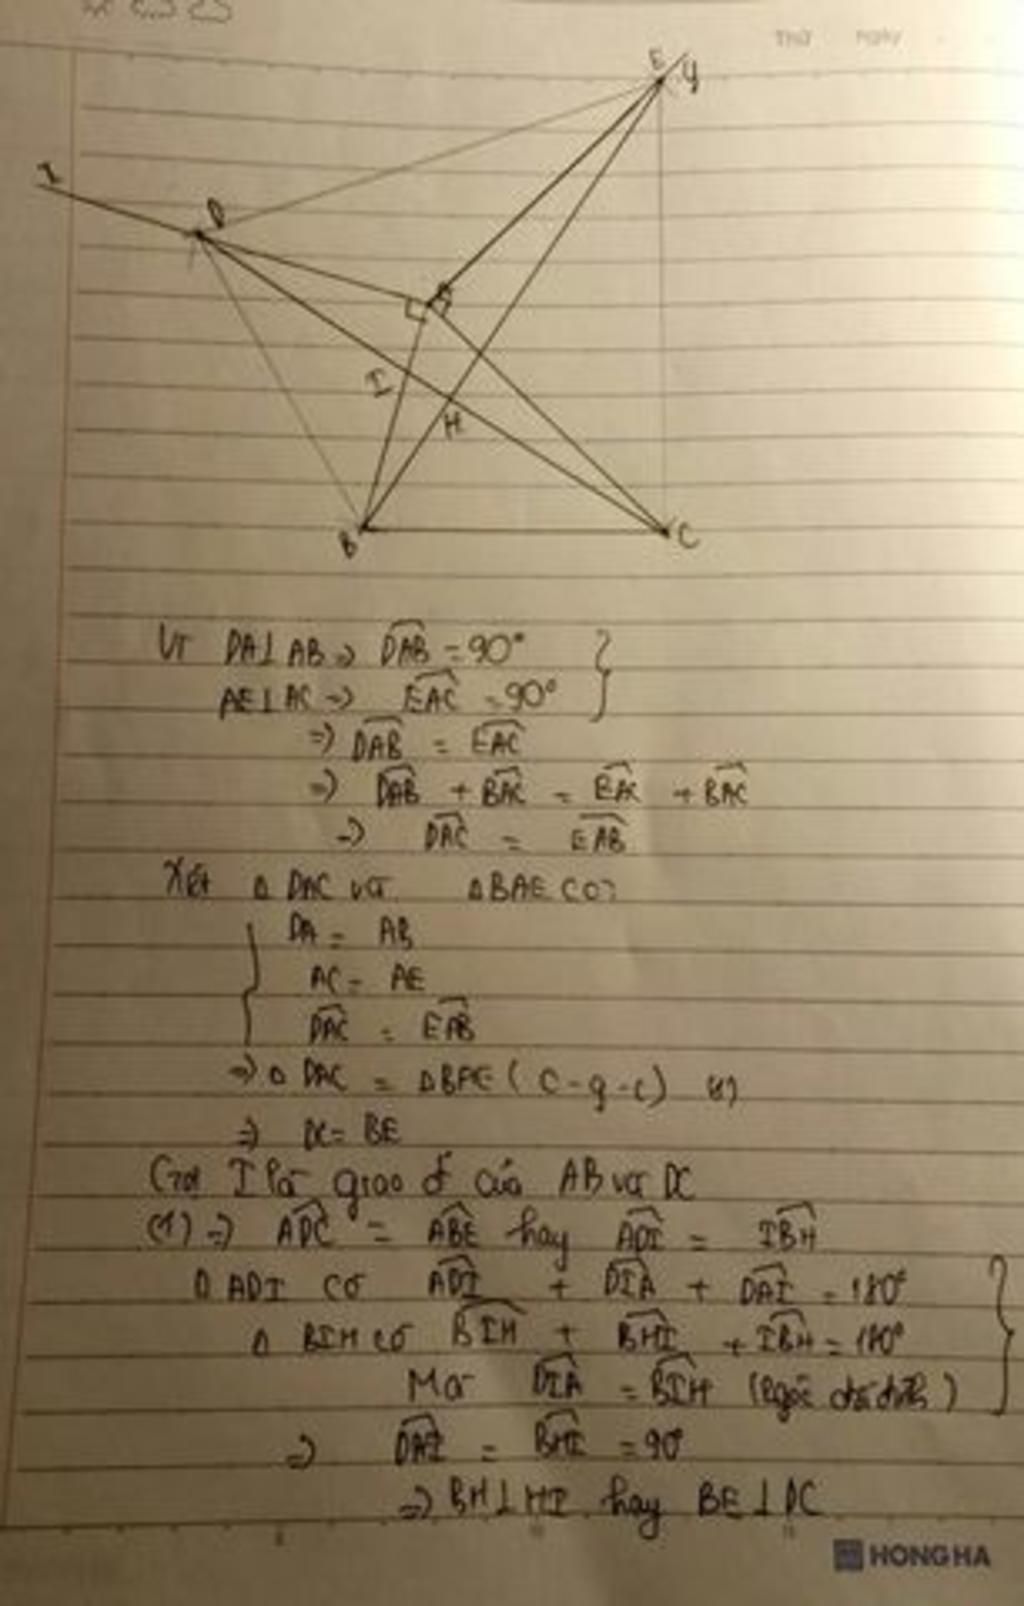 Thứ Ngày
E y
x
D
A
I
H
B C
Vì DA⊥AB ⇒ \widehat{DAB} = 90°
AE⊥AC ⇒ \widehat{EAC} = 90°
⇒ \widehat{DAB} = \widehat{EAC}
⇒ \widehat{DAB} + \widehat{BAC} = \widehat{EAC} + \widehat{BAC}
⇒ \widehat{DAC} = \widehat{EAB}
Xét Δ DAC và ΔBAE có:
DA = AB
AC = AE
\widehat{DAC} = \widehat{EAB}
⇒ Δ DAC = ΔBAE (c-g-c) (1)
⇒ DC = BE
Gọi I là giao đ của AB và DC
(1) ⇒ \widehat{ADC} = \widehat{ABE} hay \widehat{ADI} = \widehat{IBH}
Δ ADI có \widehat{ADI} + \widehat{DIA} + \widehat{DAI} = 180°
Δ BIH có \widehat{BIH} + \widehat{BHI} + \widehat{IBH} = 180°
Mà \widehat{DIA} = \widehat{BIH} (2góc đối đỉnh)
⇒ \widehat{DAI} = \widehat{BHI} = 90°
⇒ BH⊥HI hay BE⊥DC
HONG HA